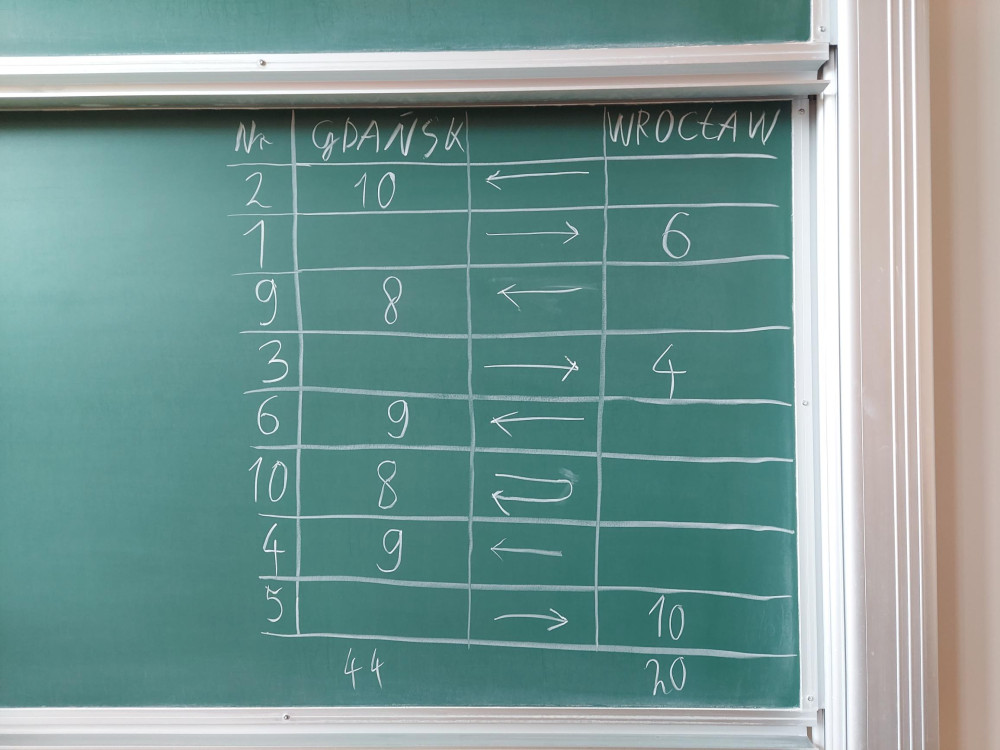 Nr GDAŃSK WROCŁAW
2 10 ←
1 → 6
9 8 ←
3 → 4
6 9 ←
10 8 ↩
4 9 ←
5 → 10
44 20